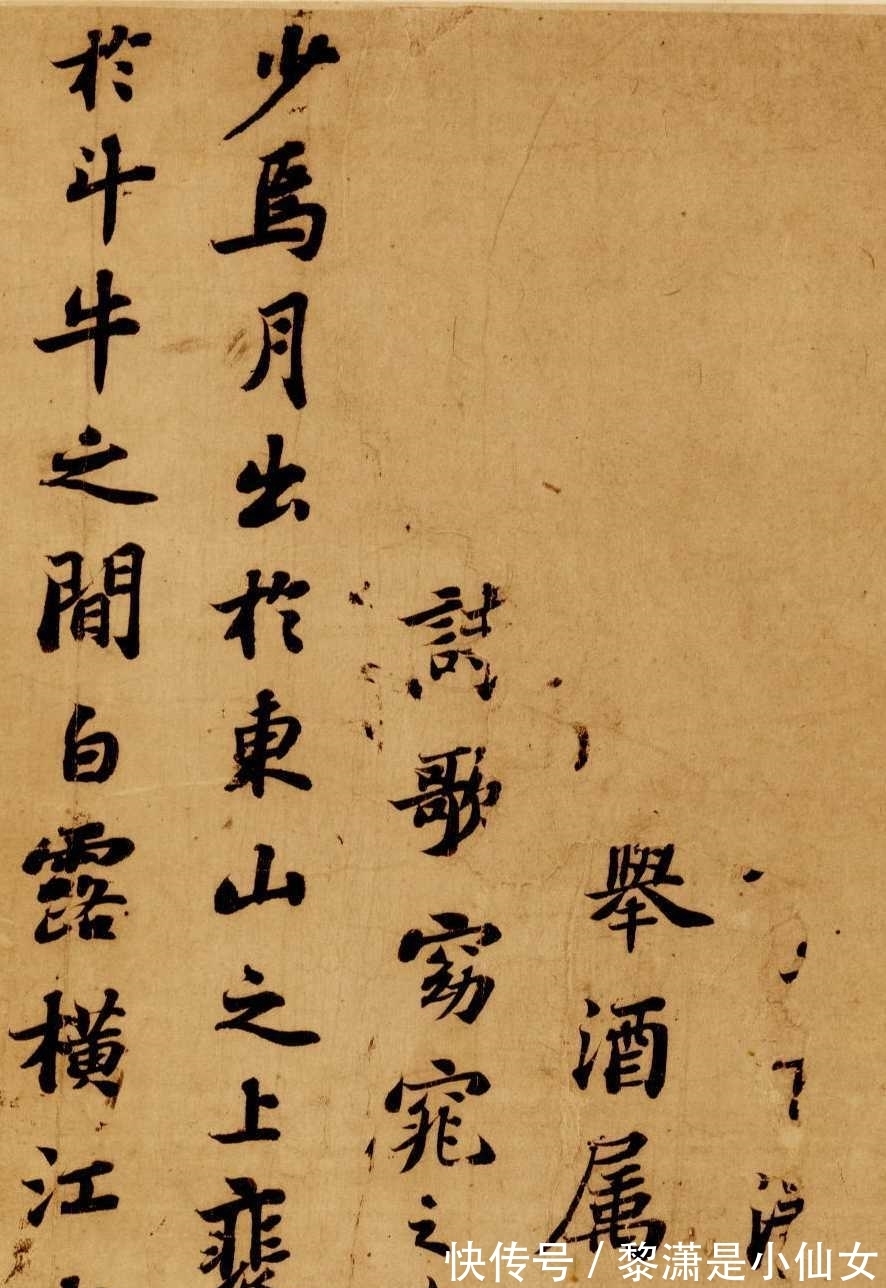 舉酒屬
詩歌窈窕之
少焉月出於東山之上
於斗牛之間白露橫江
快传号 / 黎潇是小仙女